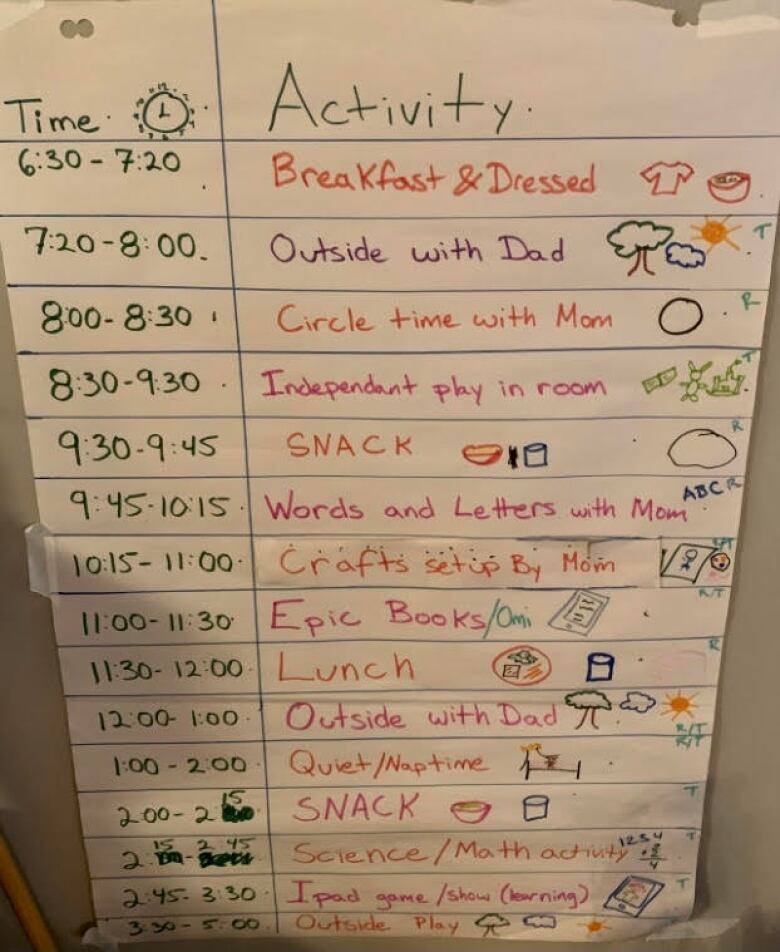 Time Activity
6:30 - 7:20 Breakfast & Dressed
7:20 - 8:00 Outside with Dad T
8:00 - 8:30 Circle time with Mom R
8:30 - 9:30 Independant play in room T
9:30 - 9:45 SNACK R
9:45 - 10:15 Words and Letters with Mom ABC R
10:15 - 11:00 Crafts setup By Mom R/T
11:00 - 11:30 Epic Books/Omi R/T
11:30 - 12:00 Lunch R
12:00 - 1:00 Outside with Dad R/T
1:00 - 2:00 Quiet/Naptime R/T
2:00 - 2:15 SNACK T
2:15 - 2:45 Science/Math activity 1234 T
2:45 - 3:30 Ipad game/show (learning) T
3:30 - 5:00 Outside Play